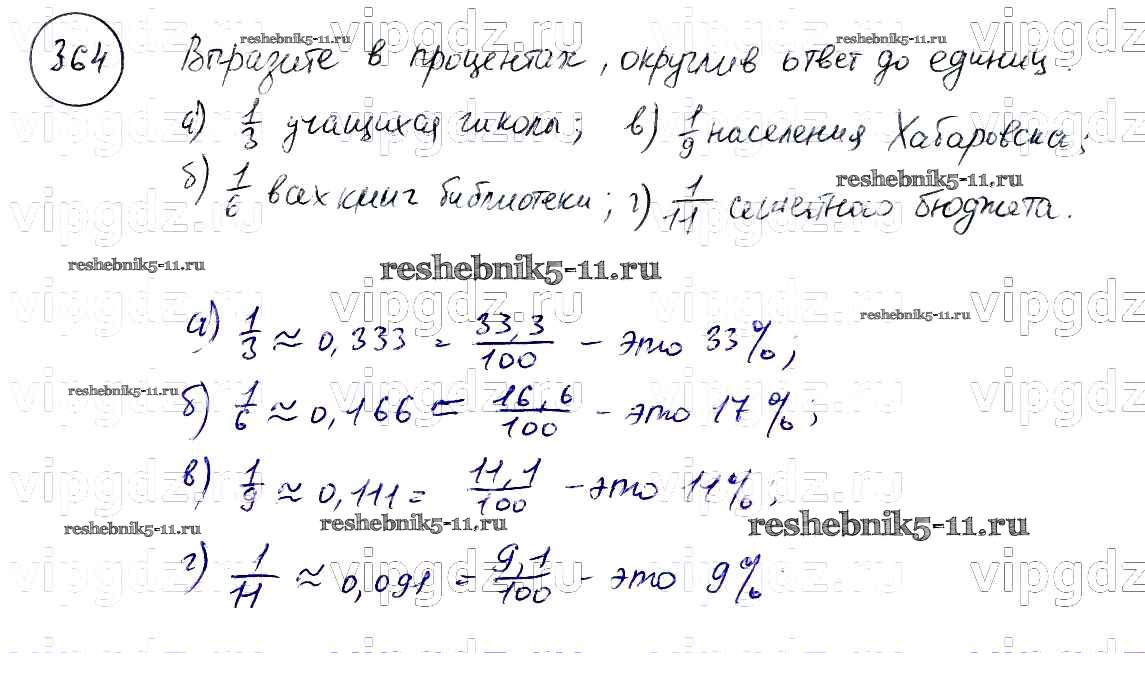 364 Выразите в процентах, округлив ответ до единиц.
а) 1/3 учащихся школы; в) 1/9 населения Хабаровска;
б) 1/6 всех книг библиотеки; г) 1/11 семейного бюджета.
а) 1/3 ≈ 0,333 = 33,3/100 - это 33%;
б) 1/6 ≈ 0,166 = 16,6/100 - это 17%;
в) 1/9 ≈ 0,111 = 11,1/100 - это 11%;
г) 1/11 ≈ 0,091 = 9,1/100 - это 9%
reshebnik5-11.ru
vipgdz.ru